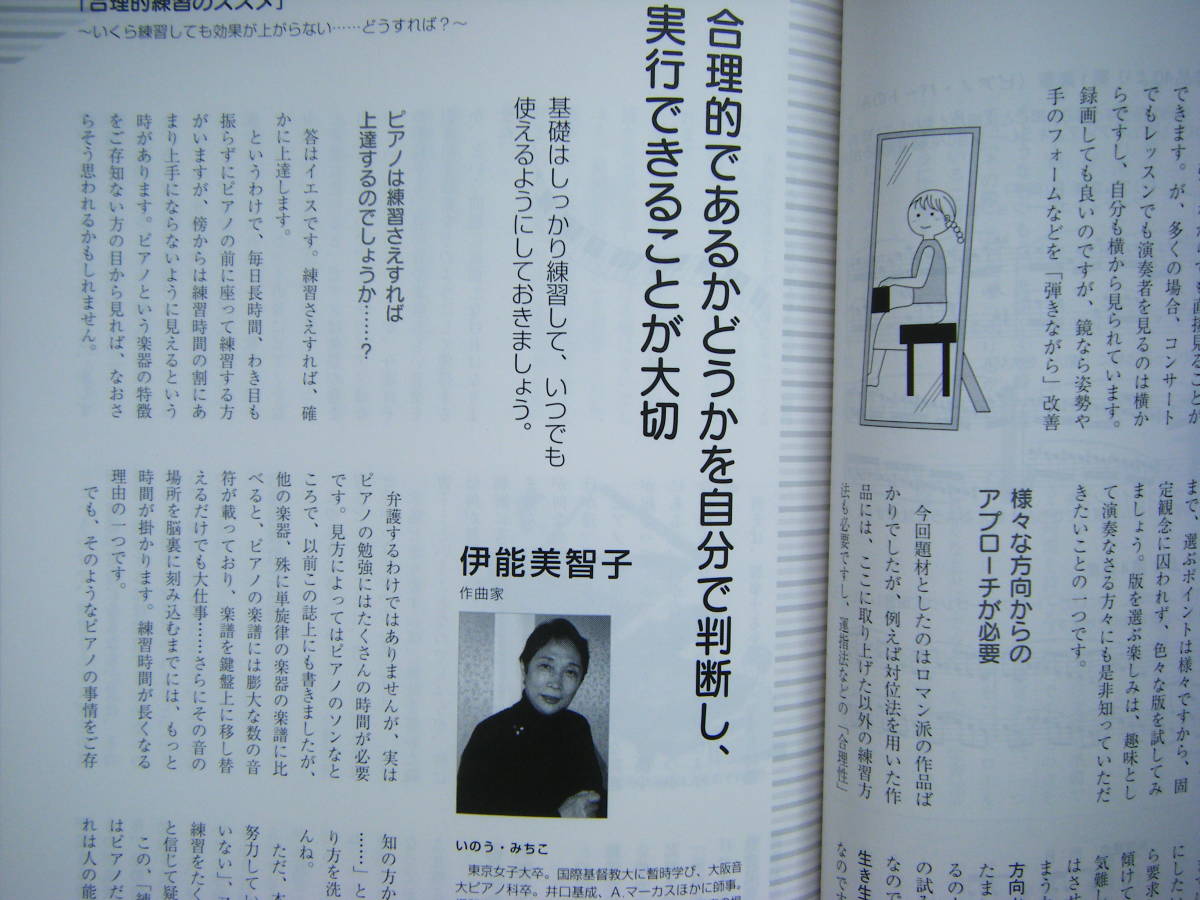 できます。が、多くの場合、コンサート
でもレッスンでも演奏者を見るのは横か
らですし、自分も横から見られています。
録画しても良いのですが、鏡なら姿勢や
手のフォームなどを「弾きながら」改善
まで、選ぶポイントは様々ですから、固
定観念に囚われず、色々な版を試してみ
ましょう。版を選ぶ楽しみは、趣味とし
て演奏なさる方々にも是非知っていただ
きたいことの一つです。
様々な方向からの
アプローチが必要
今回題材としたのはロマン派の作品ば
かりでしたが、例えば対位法を用いた作
品には、ここに取り上げた以外の練習方
法も必要ですし、運指法などの「合理性」
にした
ら要求
傾けて
気難し
はさせ
まう
方向
たま
るの
の試み
なので
生き生
なので
「合理的練習のススメ」
～いくら練習しても効果が上がらない……どうすれば？～
合理的であるかどうかを自分で判断し、
実行できることが大切
基礎はしっかり練習して、いつでも
使えるようにしておきましょう。
伊能美智子
作曲家
いのう・みちこ
東京女子大卒。国際基督教大に暫時学び、大阪音
大ピアノ科卒。井口基成、A.マーカスほかに師事。
ピアノは練習さえすれば
上達するのでしょうか……？
答はイエスです。練習さえすれば、確
かに上達します。
というわけで、毎日長時間、わき目も
振らずにピアノの前に座って練習する方
がいますが、傍からは練習時間の割にあ
まり上手にならないように見えるという
時があります。ピアノという楽器の特徴
をご存知ない方の目から見れば、なおさ
らそう思われるかもしれません。
弁護するわけではありませんが、実は
ピアノの勉強にはたくさんの時間が必要
です。見方によってはピアノのソンなと
ころで、以前この誌上にも書きましたが、
他の楽器、殊に単旋律の楽器の楽譜に比
べると、ピアノの楽譜には膨大な数の音
符が載っており、楽譜を鍵盤上に移し替
えるだけでも大仕事……さらにその音の
場所を脳裏に刻み込むまでには、もっと
時間が掛かります。練習時間が長くなる
理由の一つです。
でも、そのようなピアノの事情をご存
知の方か
……」と
り方を洗
んね。
ただ、本
努力してい
いない」、
練習をたく
と信じて疑
この、「練
はピアノだ
れは人の能